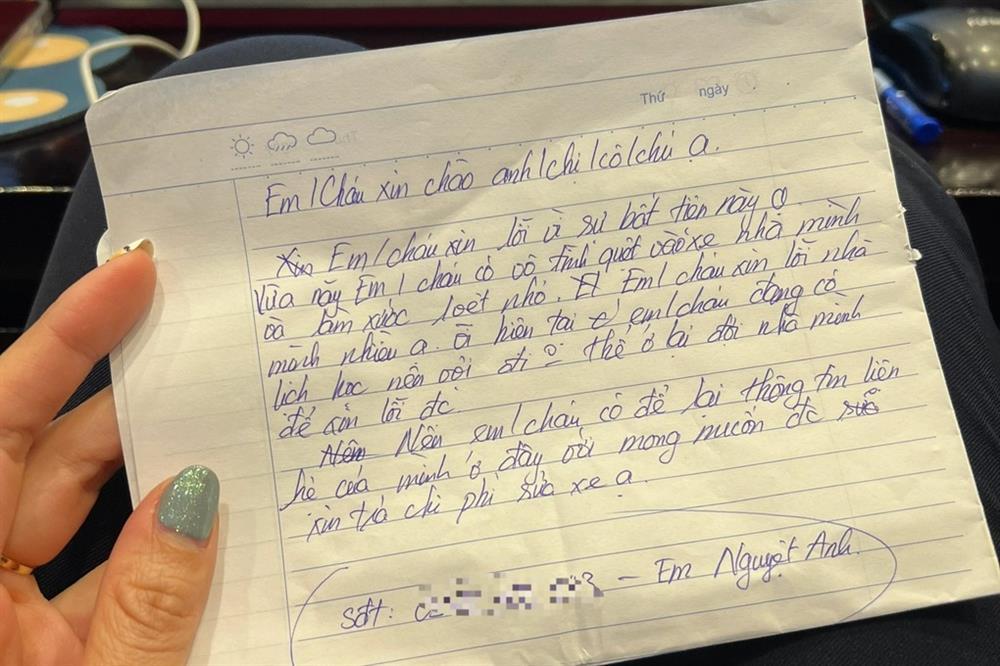 Thứ ngày
Em/Cháu xin chào anh/chị/cô/chú ạ.
Xin Em/cháu xin lỗi vì sự bất tiện này ạ
Vừa nãy Em/cháu có vô tình quệt vào xe nhà mình
và làm xước 1 vết nhỏ. Em/cháu xin lỗi nhà
mình nhiều ạ. Vì hiện tại em/cháu đang có
lịch học nên vội đi thể ở lại đợi nhà mình
để xin lỗi đc
Nên Nên em/cháu có để lại thông tin liên
hệ của mình ở đây với mong muốn đc
xin trả chi phí sửa xe ạ.
sđt: - Em Nguyệt Anh.